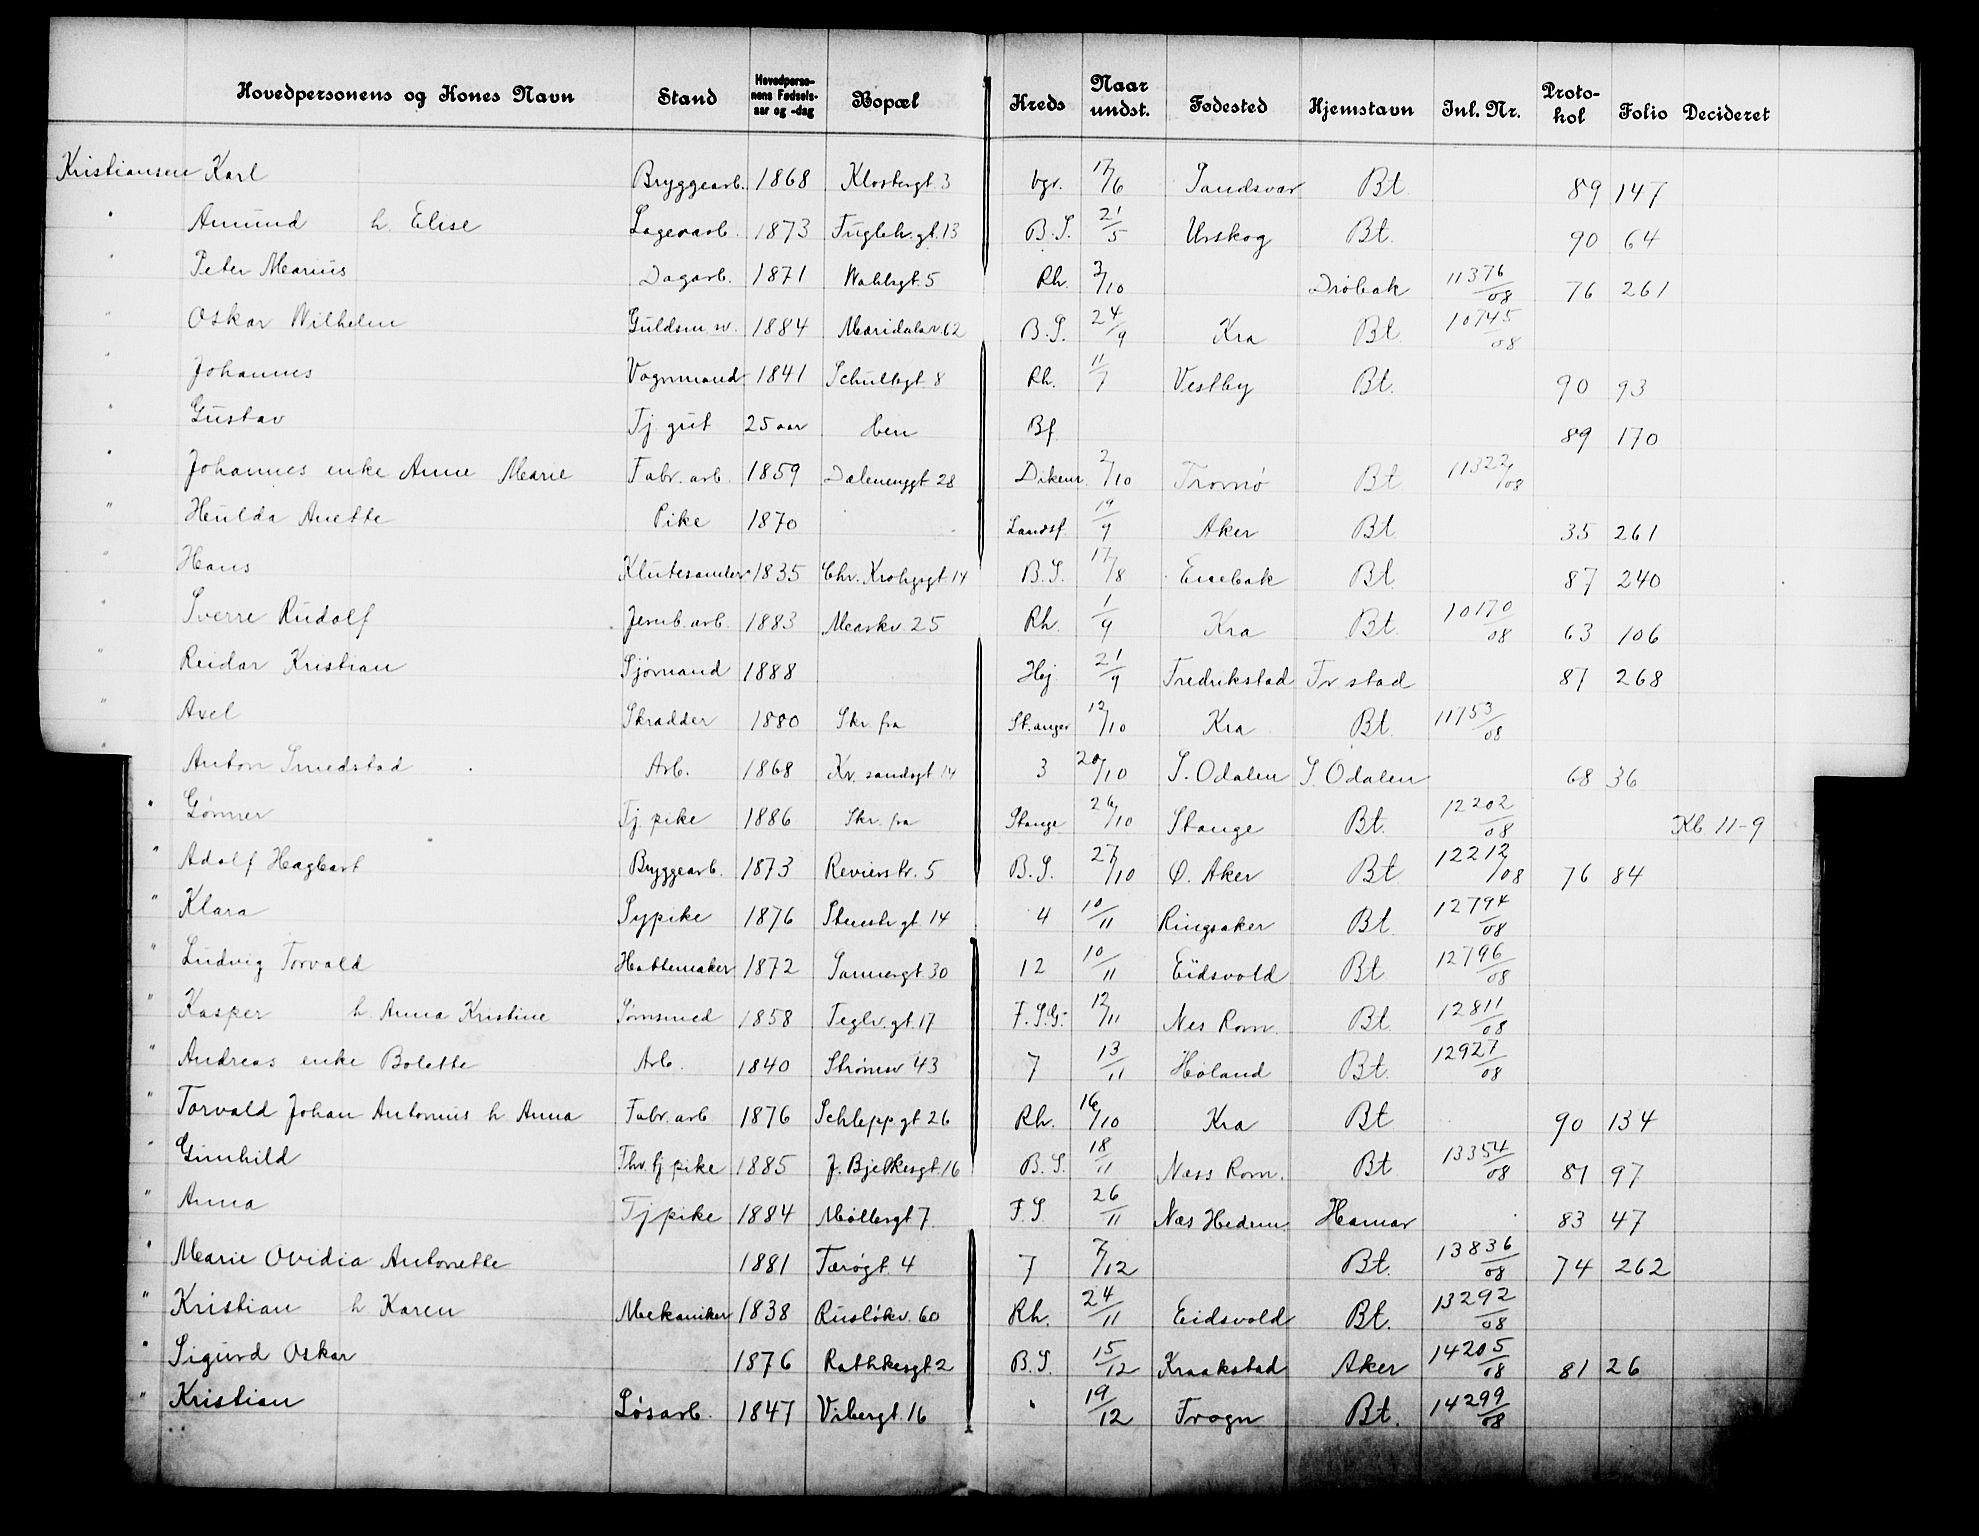 Hovedpersonens og Kones Navn Stand Hovedpersonens Fødselsaar og -dag Bopæl Kreds Naar undst. Fødested Hjemstavn Inl. Nr. Protokol Folio Decideret
Kristiansen Karl Bryggearb. 1868 Klostergt. 3 Vgr. 17/6 Sandsvær Bt. 89 147
" Amund h. Elise Lagerarb. 1873 Fugleh.gt. 13 B.S. 21/5 Urskog Bt. 90 64
" Peter Marius Dagarb. 1871 Wahlsgt. 5 Rh. 3/10 Drøbak 11376/08 76 261
" Oskar Wilhelm Guldsm.sv. 1884 Maridalsv. 62 B.S. 24/9 Kra Bt. 10745/08
" Johannes Vognmand 1841 Schultzgt 8 Rh. 11/7 Vestby Bt. 90 93
" Gustav Tj. gut 25 aar Hen Bf. 89 170
" Johannes enke Anne Marie Fabr. arb. 1859 Dalenenggt 28 Dikem. 2/10 Tromø Bt 11322/08
" Hulda Anette Pike 1870 Landsf. 19/9 Aker Bt. 35 261
" Hans Klutesamler 1835 Chr. Krohgsgt. 14 B.S. 17/8 Enebak Bt 87 240
" Sverre Rudolf Jernb. arb. 1883 Markv. 25 Rh. 1/9 Kra Bt. 10170/08 63 106
" Reidar Kristian Sjømand 1888 Hej 21/9 Fredrikstad Fr stad 87 268
" Axel Skrædder 1880 Skr. fra Stanger 12/10 Kra Bt. 11753/08
" Anton Smedstad Arb. 1868 Kr. sandsgt 14 3 20/10 S. Odalen S. Odalen 68 36
" Gunner Tj. pike 1886 Skr. fra Stange 26/10 Stange Bt. 12202/08 Kb 11-9
" Adolf Hagbart Bryggearb. 1873 Revierstr. 5 B.S. 27/10 Ø. Aker Bt 12212/08 76 84
" Klara Sypike 1876 Stenstr gt 14 4 10/11 Ringsaker Bt. 12794/08
" Ludvig Torvald Hattemaker 1872 Sannergt 30 12 10/11 Eidsvold Bt 12796/08
" Kasper h. Anna Kristine Tømsmed 1858 Teglv. gt. 17 F.S.G. 12/11 Nes Rom. Bt. 12811/08
" Andreas enke Bolette Arb. 1840 Strømsv 43 7 13/11 Høland Bt. 12927/08
" Torvald Johan Antonius h. Anna Fabr. arb 1876 Schlepp.gt 26 Rh. 16/10 Kra Bt 90 134
" Gunhild Thv. tj pike 1885 J. Bjelkesgt. 16 B.S. 18/11 Næss Rom. Bt 13354/08 81 97
" Anna Tj pike 1884 Møllergt 7. F.S. 26/11 Næs Hedem. Hamar 83 47
" Marie Ovidia Antonette 1881 Færøgt. 4 7 7/12 Bt. 13836/08 74 262
" Kristian h Karen Mekaniker 1838 Rusløkv. 60 Rh. 24/11 Eidsvold Bt. 13292/08
" Sigurd Oskar 1876 Rathkesgt 2 B.S. 15/12 Kraakstad Aker 14205/08 81 26
" Kristian Løsarb. 1847 Vibergt. 16 " 19/12 Frogn Bt. 14299/08